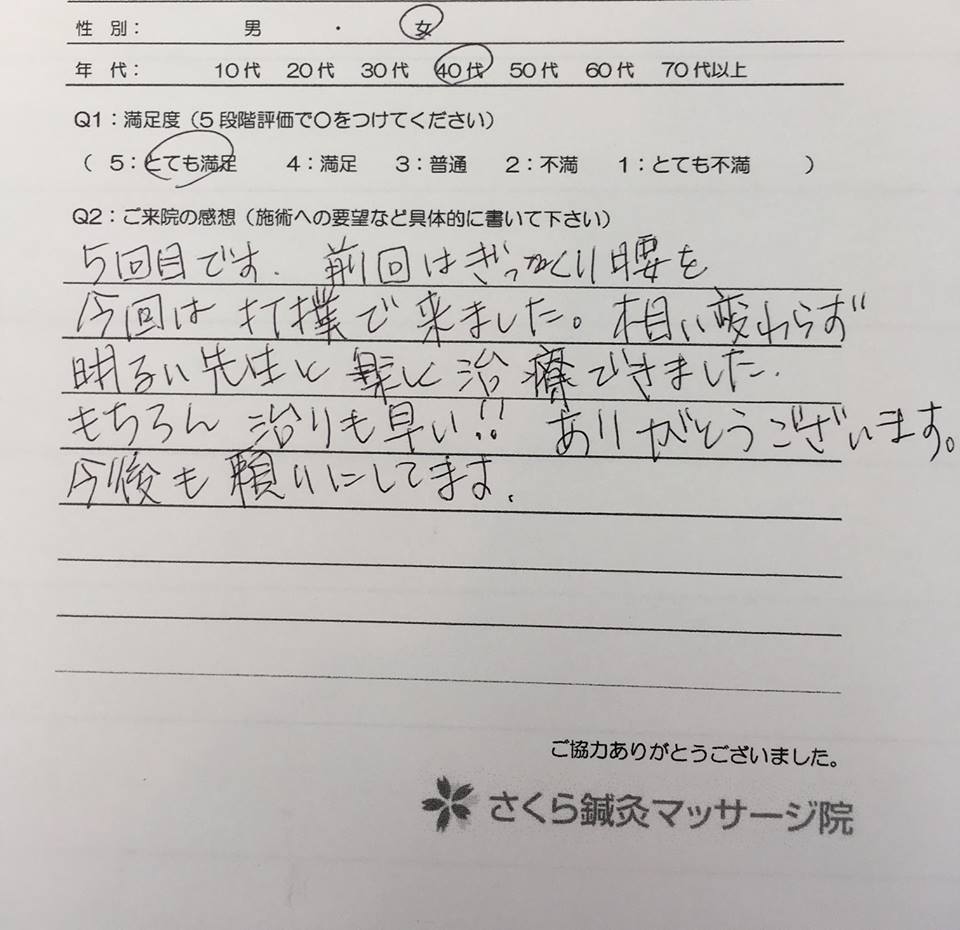 性 別： 男 ・ 女
年 代： 10代 20代 30代 40代 50代 60代 70代以上
Q1：満足度（5段階評価で○をつけてください）
（ 5：とても満足 4：満足 3：普通 2：不満 1：とても不満 ）
Q2：ご来院の感想（施術への要望など具体的に書いて下さい）
5回目です. 前回はぎっくり腰を
今回は打撲で来ました。相い変わらず
明るい先生と楽しく治療できました.
もちろん 治りも早い!! ありがとうございます。
今後も頼りにしてます.
ご協力ありがとうございました。
さくら鍼灸マッサージ院